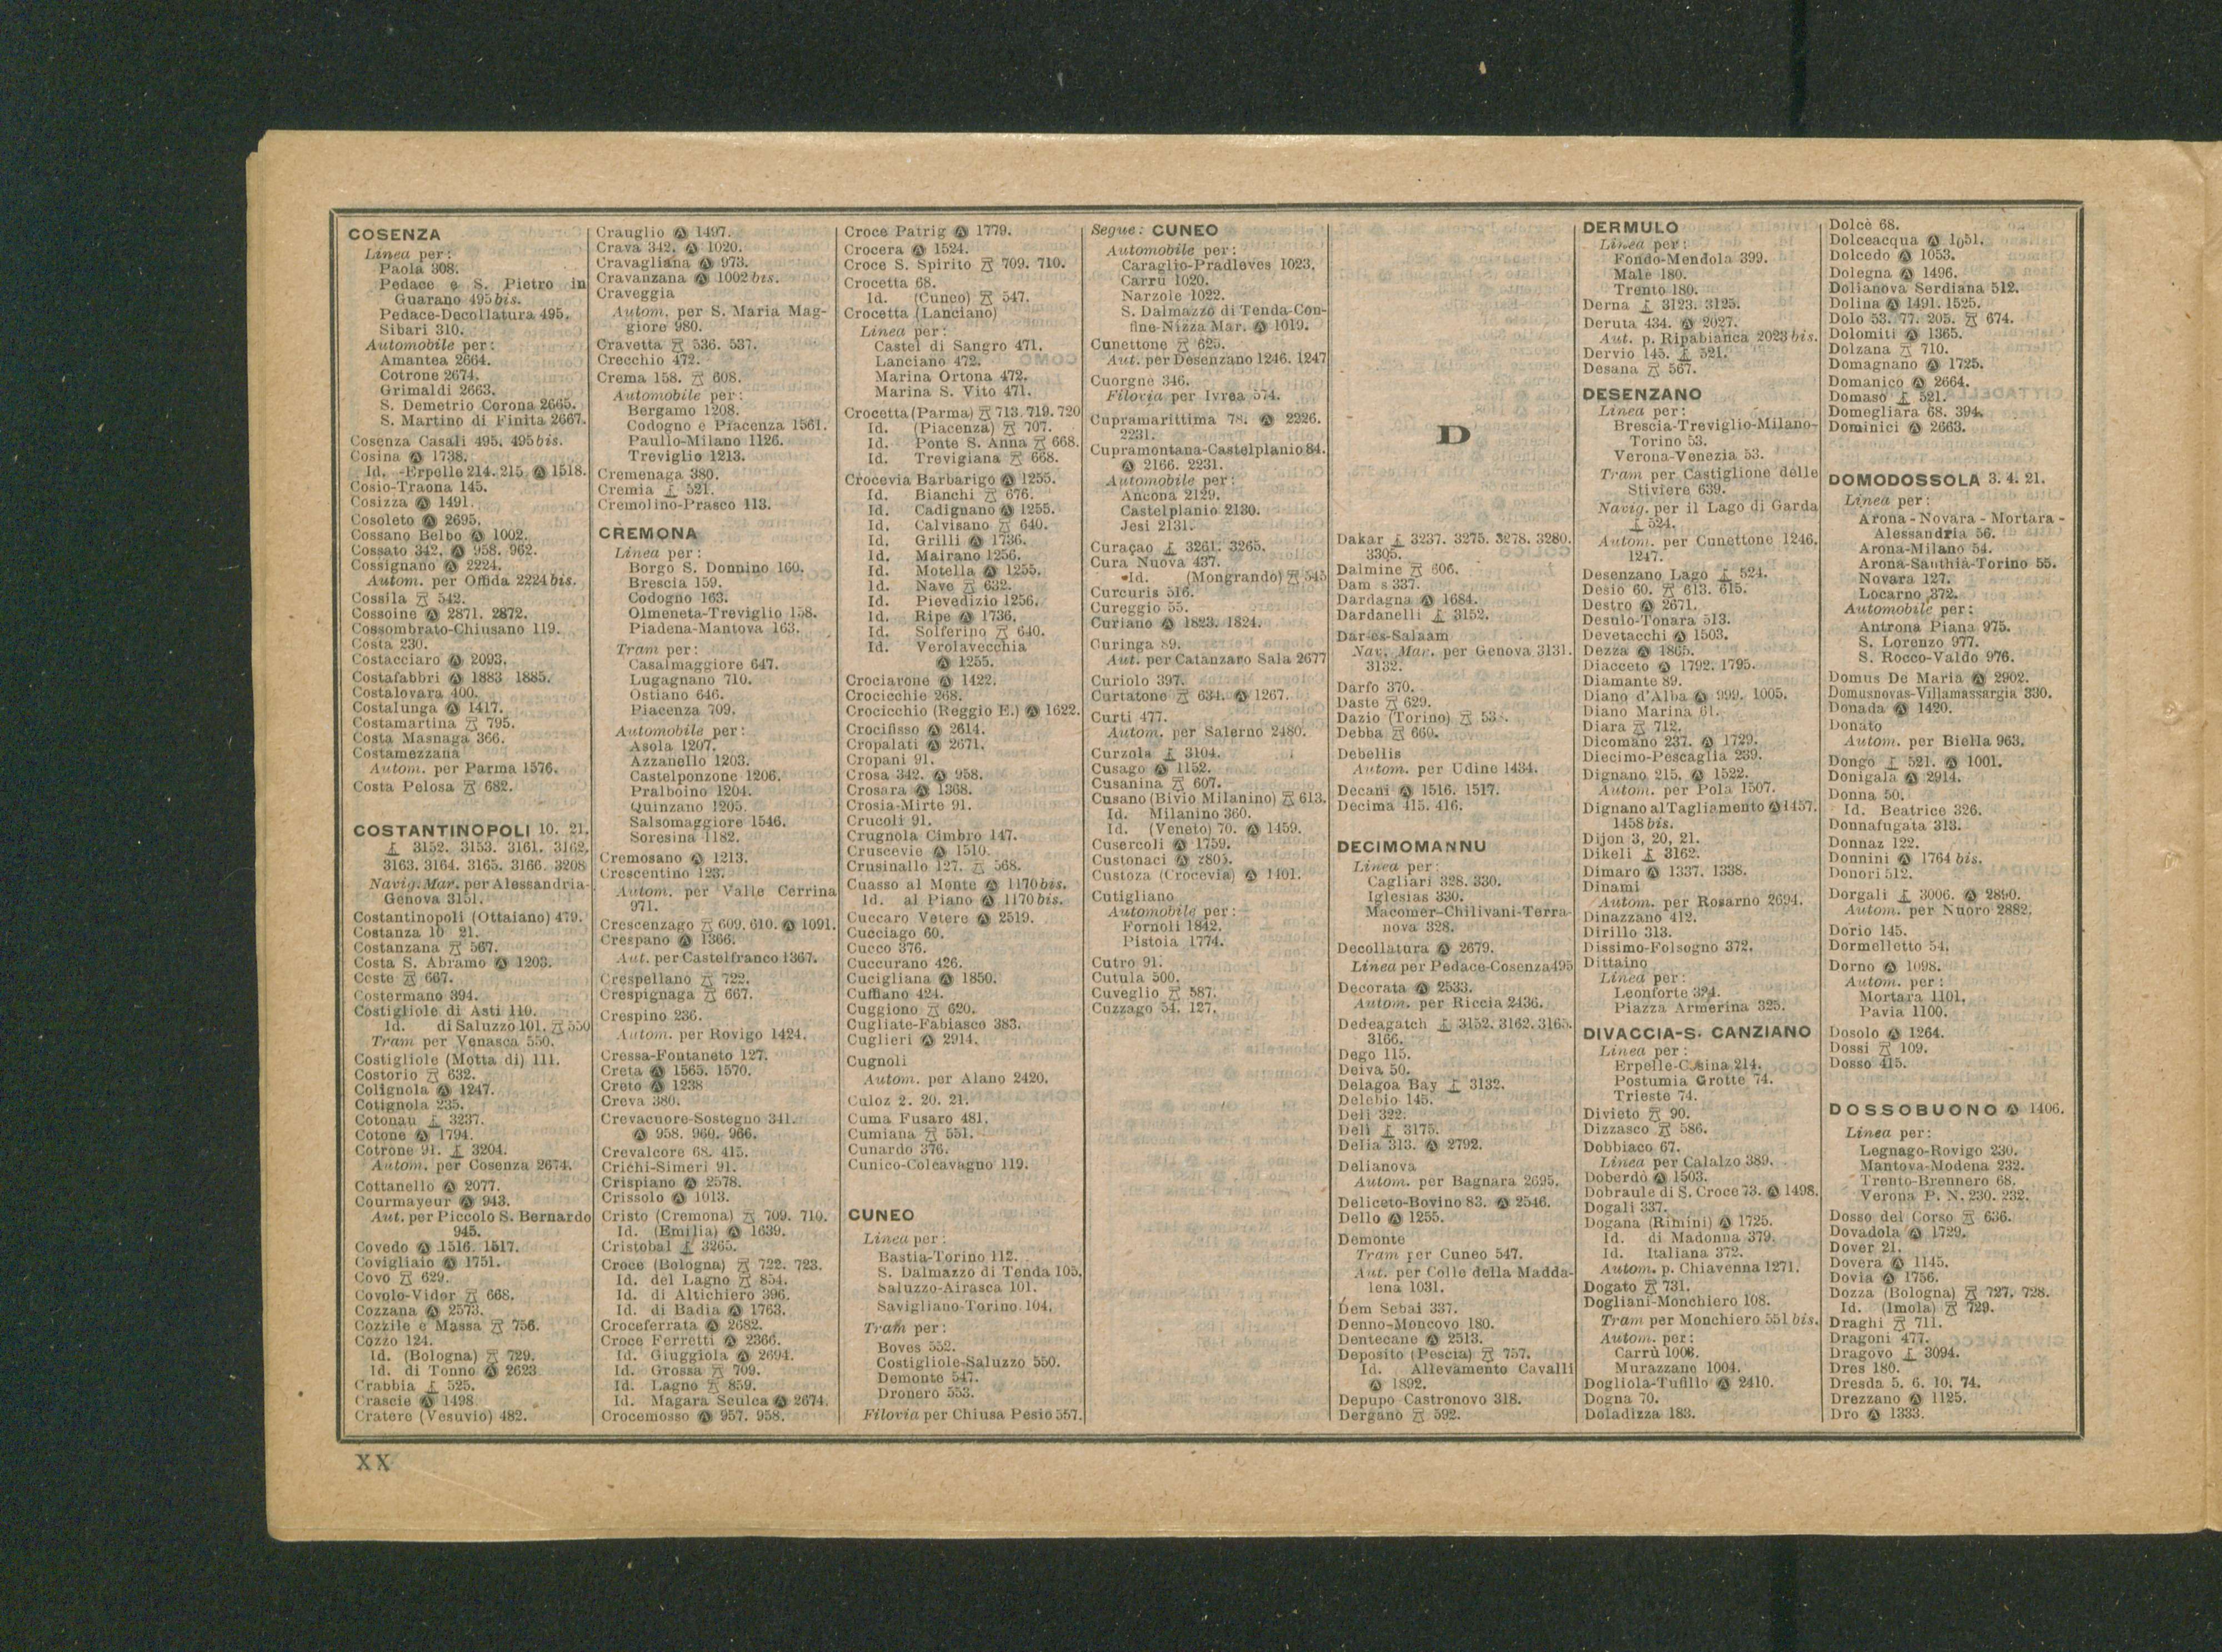 COSENZA
Linea per:
Paola 308.
Pedace e S. Pietro in
Guarano 495 bis.
Pedace-Decollatura 495.
Sibari 310.
Automobile per:
Amantea 2664.
Cotrone 2674.
Grimaldi 2663.
S. Demetrio Corona 2665.
S. Martino di Finita 2667.
Cosenza Casali 495. 495 bis.
Cosina Ⓐ 1738.
Id. -Erpelle 214. 215. Ⓐ 1518.
Cosio-Traona 145.
Cosizza Ⓐ 1491.
Cosoleto Ⓐ 2695.
Cossano Belbo Ⓐ 1002.
Cossato 342. Ⓐ 958. 962.
Cossignano Ⓐ 2224.
Autom. per Offida 2224 bis.
Cossila 542.
Cossoine Ⓐ 2871. 2872.
Cossombrato-Chiusano 119.
Costa 230.
Costacciaro Ⓐ 2093.
Costafabbri Ⓐ 1883 1885.
Costalovara 400.
Costalunga Ⓐ 1417.
Costamartina 795.
Costa Masnaga 366.
Costamezzana
Autom. per Parma 1576.
Costa Pelosa 682.
COSTANTINOPOLI 10. 21.
3152. 3153. 3161. 3162.
3163. 3164. 3165. 3166. 3208
Navig. Mar. per Alessandria-
Genova 3151.
Costantinopoli (Ottaiano) 479.
Costanza 10 21.
Costanzana 567.
Costa S. Abramo Ⓐ 1203.
Coste 667.
Costermano 394.
Costigliole di Asti 110.
Id. di Saluzzo 101. 550
Tram per Venasca 550.
Costigliole (Motta di) 111.
Costorio 632.
Cotignola Ⓐ 1247.
Cotignola 235.
Cotonau 3237.
Cotone Ⓐ 1794.
Cotrone 91. 3204.
Autom. per Cosenza 2674.
Cottanello Ⓐ 2077.
Courmayeur Ⓐ 943.
Aut. per Piccolo S. Bernardo
945.
Covedo Ⓐ 1516. 1517.
Covigliaio Ⓐ 1751.
Covo 629.
Covolo-Vidor 668.
Cozzana Ⓐ 2573.
Cozzile e Massa 756.
Cozzo 124.
Id. (Bologna) 729.
Id. di Tonno Ⓐ 2623
Crabbia 525.
Crascie Ⓐ 1498
Cratere (Vesuvio) 482.
Crauglio Ⓐ 1497.
Crava 342. Ⓐ 1020.
Cravagliana Ⓐ 973.
Cravanzana Ⓐ 1002 bis.
Craveggia
Autom. per S. Maria Mag-
giore 980.
Cravetta 536. 537.
Crecchio 472.
Crema 158. 608.
Automobile per:
Bergamo 1208.
Codogno e Piacenza 1561.
Paullo-Milano 1126.
Treviglio 1213.
Cremenaga 380.
Cremia 521.
Cremolino-Prasco 113.
CREMONA
Linea per:
Borgo S. Donnino 160.
Brescia 159.
Codogno 163.
Olmeneta-Treviglio 158.
Piadena-Mantova 163.
Tram per:
Casalmaggiore 647.
Lugagnano 710.
Ostiano 646.
Piacenza 709.
Automobile per:
Asola 1207.
Azzanello 1203.
Castelponzone 1206.
Pralboino 1204.
Quinzano 1205.
Salsomaggiore 1546.
Soresina 1182.
Cremosano Ⓐ 1213.
Crescentino 123.
Autom. per Valle Cerrina
971.
Crescenzago 609. 610. Ⓐ 1091.
Crespano Ⓐ 1366.
Aut. per Castelfranco 1367.
Crespellano 722.
Crespignaga 667.
Crespino 236.
Autom. per Rovigo 1424.
Cressa-Fontaneto 127.
Creta Ⓐ 1565. 1570.
Creto Ⓐ 1238
Creva 380.
Crevacuore-Sostegno 341.
Ⓐ 958. 960. 966.
Crevalcore 68. 415.
Crichi-Simeri 91.
Crispiano Ⓐ 2578.
Crissolo Ⓐ 1013.
Cristo (Cremona) 709. 710.
Id. (Emilia) Ⓐ 1639.
Cristobal 3265.
Croce (Bologna) 722. 723.
Id. del Lagno 854.
Id. di Altichiero 396.
Id. di Badia Ⓐ 1763.
Croceferrata Ⓐ 2682.
Croce Ferretti Ⓐ 2366.
Id. Giuggiola Ⓐ 2694.
Id. Grossa 709.
Id. Lagno 859.
Id. Magara Sculca Ⓐ 2674.
Crocemosso Ⓐ 957. 958.
Croce Patrig Ⓐ 1779.
Crocera Ⓐ 1524.
Croce S. Spirito 709. 710.
Crocetta 68.
Id. (Cuneo) 547.
Crocetta (Lanciano)
Linea per:
Castel di Sangro 471.
Lanciano 472.
Marina Ortona 472.
Marina S. Vito 471.
Crocetta (Parma) 713. 719. 720
Id. (Piacenza) 707.
Id. Ponte S. Anna 668.
Id. Trevigiana 668.
Crocevia Barbarigo Ⓐ 1255.
Id. Bianchi 676.
Id. Cadignano Ⓐ 1255.
Id. Calvisano 640.
Id. Grilli Ⓐ 1736.
Id. Mairano 1256.
Id. Motella Ⓐ 1255.
Id. Nave 632.
Id. Pievedizio 1256.
Id. Ripe Ⓐ 1736.
Id. Solferino 640.
Id. Verolavecchia
Ⓐ 1255.
Crociarone Ⓐ 1422.
Crocicchie 268.
Crocicchio (Reggio E.) Ⓐ 1622.
Crocifisso Ⓐ 2614.
Cropalati Ⓐ 2671.
Cropani 91.
Crosa 342. Ⓐ 958.
Crosara Ⓐ 1368.
Crosia-Mirto 91.
Crucoli 91.
Crugnola Cimbro 147.
Cruscevie Ⓐ 1510.
Crusinallo 127. 568.
Cuasso al Monte Ⓐ 1170 bis.
Id. al Piano Ⓐ 1170 bis.
Cuccaro Vetere Ⓐ 2519.
Cucciago 60.
Cucco 376.
Cuccurano 426.
Cucigliana Ⓐ 1850.
Cuffiano 424.
Cuggiono 620.
Cugliate-Fabiasco 383.
Cuglieri Ⓐ 2914.
Cugnoli
Autom. per Alano 2420.
Culoz 2. 20. 21.
Cuma Fusaro 481.
Cumiana 551.
Cunardo 376.
Cunico-Colcavagno 119.
CUNEO
Linea per:
Bastia-Torino 112.
S. Dalmazzo di Tenda 105.
Saluzzo-Airasca 101.
Savigliano-Torino 104.
Tram per:
Boves 552.
Costigliole-Saluzzo 550.
Demonte 547.
Dronero 553.
Filovia per Chiusa Pesio 557.
Segue: CUNEO
Automobile per:
Caraglio-Pradleves 1023.
Carrù 1020.
Narzole 1022.
S. Dalmazzo di Tenda-Con-
fine-Nizza Mar. Ⓐ 1019.
Cunettone 625.
Aut. per Desenzano 1246. 1247
Cuorgnè 346.
Filovia per Ivrea 574.
Cupramarittima 78. Ⓐ 2226.
2231.
Cupramontana-Castelplanio 84.
Ⓐ 2166. 2231.
Automobile per:
Ancona 2129.
Castelplanio 2130.
Jesi 2131.
Curaçao 3261. 3265.
Cura Nuova 437.
Id. (Mongrando) 545
Curcuris 516.
Cureggio 55.
Curiano Ⓐ 1823. 1824.
Curinga 89.
Aut. per Catanzaro Sala 2677
Curiolo 397.
Curtatone 634. Ⓐ 1267.
Curti 477.
Autom. per Salerno 2480.
Curzola 3104.
Cusago Ⓐ 1152.
Cusanina 607.
Cusano (Bivio Milanino) 613.
Id. Milanino 360.
Id. (Veneto) 70. Ⓐ 1459.
Cusercoli Ⓐ 1759.
Custonaci Ⓐ
Custoza (Crocevia) Ⓐ 1401.
Cutigliano
Automobile per:
Fornoli 1842.
Pistoia 1774.
Cutro 91.
Cutula 500.
Cuveglio 587.
Cuzzago 54. 127.
D
Dakar 3237. 3275. 3278. 3280.
3305.
Dalmine 606.
Dam s 337.
Dardagna Ⓐ 1684.
Dardanelli 3152.
Dar-es-Salaam
Nav. Mar. per Genova 3131.
3132.
Darfo 370.
Daste 629.
Dazio (Torino)
Debba 660.
Debellis
Autom. per Udine 1434.
Decani Ⓐ 1516. 1517.
Decima 415. 416.
DECIMOMANNU
Linea per:
Cagliari 328. 330.
Iglesias 330.
Macomer-Chilivani-Terra-
nova 328.
Decollatura Ⓐ 2679.
Linea per Pedace-Cosenza 495
Decorata Ⓐ 2533.
Autom. per Riccia 2436.
Dedeagatch 3152. 3162. 3165.
3166.
Dego 115.
Deiva 50.
Delagoa Bay 3132.
Delebio 145.
Deli 322.
Deli 3175.
Delia 313. Ⓐ 2792.
Delianova
Autom. per Bagnara 2695.
Deliceto-Bovino 83. Ⓐ 2546.
Dello Ⓐ 1255.
Demonte
Tram per Cuneo 547.
Aut. per Colle della Madda-
lena 1031.
Dem Sebai 337.
Denno-Moncovo 180.
Dentecane Ⓐ 2513.
Deposito (Pescia) 757.
Id. Allevamento Cavalli
Ⓐ 1892.
Depupo Castronovo 318.
Dergano 592.
DERMULO
Linea per:
Fondo-Mendola 399.
Malè 180.
Trento 180.
Derna 3123. 3125.
Deruta 434. Ⓐ 2027.
Aut. p. Ripabianca 2023 bis.
Dervio 145. 521.
Desana 567.
DESENZANO
Linea per:
Brescia-Treviglio-Milano-
Torino 53.
Verona-Venezia 53.
Tram per Castiglione delle
Stiviere 639.
Navig. per il Lago di Garda
524.
Autom. per Cunettone 1246.
1247.
Desenzano Lago 524.
Desio 60. 613. 615.
Destro Ⓐ 2671.
Desulo-Tonara 513.
Devetacchi Ⓐ 1503.
Dezza Ⓐ 1865.
Diacceto Ⓐ 1792. 1795.
Diamante 89.
Diano d'Alba Ⓐ 999. 1005.
Diano Marina 61.
Diara 712.
Dicomano 237. Ⓐ 1729.
Diecimo-Pescaglia 239.
Dignano 215. Ⓐ 1522.
Autom. per Pola 1507.
Dignano al Tagliamento Ⓐ 1457.
1458 bis.
Dijon 3, 20, 21.
Dikeli 3162.
Dimaro Ⓐ 1337. 1338.
Dinami
Autom. per Rosarno 2694.
Dinazzano 412.
Dirillo 313.
Dissimo-Folsogno 372.
Dittaino
Linea per:
Leonforte 324.
Piazza Armerina 325.
DIVACCIA-S. CANZIANO
Linea per:
Erpelle-Cosina 214.
Postumia Grotte 74.
Trieste 74.
Divieto 90.
Dizzasco 586.
Dobbiaco 67.
Linea per Calalzo 389.
Doberdò Ⓐ 1503.
Dobraule di S. Croce 73. Ⓐ 1498.
Dogali 337.
Dogana (Rimini) Ⓐ 1725.
Id. di Madonna 379.
Id. Italiana 372.
Autom. p. Chiavenna 1271.
Dogato 731.
Dogliani-Monchiero 108.
Tram per Monchiero 551 bis.
Autom. per:
Carrù 1006.
Murazzano 1004.
Dogliola-Tufillo Ⓐ 2410.
Dogna 70.
Doladizza 183.
Dolcè 68.
Dolceacqua Ⓐ 1051.
Dolcedo Ⓐ 1053.
Dolegna Ⓐ 1496.
Dolianova Serdiana 512.
Dolina Ⓐ 1491. 1525.
Dolo 53. 77. 205. 674.
Dolomiti Ⓐ 1365.
Dolzana 710.
Domagnano Ⓐ 1725.
Domanico Ⓐ 2664.
Domaso 521.
Domegliara 68. 394.
Dominici Ⓐ 2663.
DOMODOSSOLA 3. 4. 21.
Linea per:
Arona - Novara - Mortara -
Alessandria 56.
Arona-Milano 54.
Arona-Santhià-Torino 55.
Novara 127.
Locarno 372.
Automobile per:
Antrona Piana 975.
S. Lorenzo 977.
S. Rocco-Valdo 976.
Domus De Maria Ⓐ 2902.
Domusnovas-Villamassargia 330.
Donada Ⓐ 1420.
Donato
Autom. per Biella 963.
Dongo 521. Ⓐ 1001.
Donigala Ⓐ 2914.
Donna 50.
Id. Beatrice 326.
Donnafugata 313.
Donnaz 122.
Donnini Ⓐ 1764 bis.
Donori 512.
Dorgali 3006. Ⓐ 2890.
Autom. per Nuoro 2882.
Dorio 145.
Dormelletto 54.
Dorno Ⓐ 1098.
Autom. per:
Mortara 1101.
Pavia 1100.
Dosolo Ⓐ 1264.
Dossi 109.
Dosso 415.
DOSSOBUONO Ⓐ 1406.
Linea per:
Legnago-Rovigo 230.
Mantova-Modena 232.
Trento-Brennero 68.
Verona P. N. 230. 232.
Dosso del Corso 636.
Dovadola Ⓐ 1729.
Dover 21.
Dovera Ⓐ 1145.
Dovia Ⓐ 1756.
Dozza (Bologna) 727. 728.
Id. (Imola) 729.
Draghi 711.
Dragoni 477.
Dragovo 3094.
Dres 180.
Dresda 5. 6. 10. 74.
Drezzano Ⓐ 1125.
Dro Ⓐ 1333.
XX